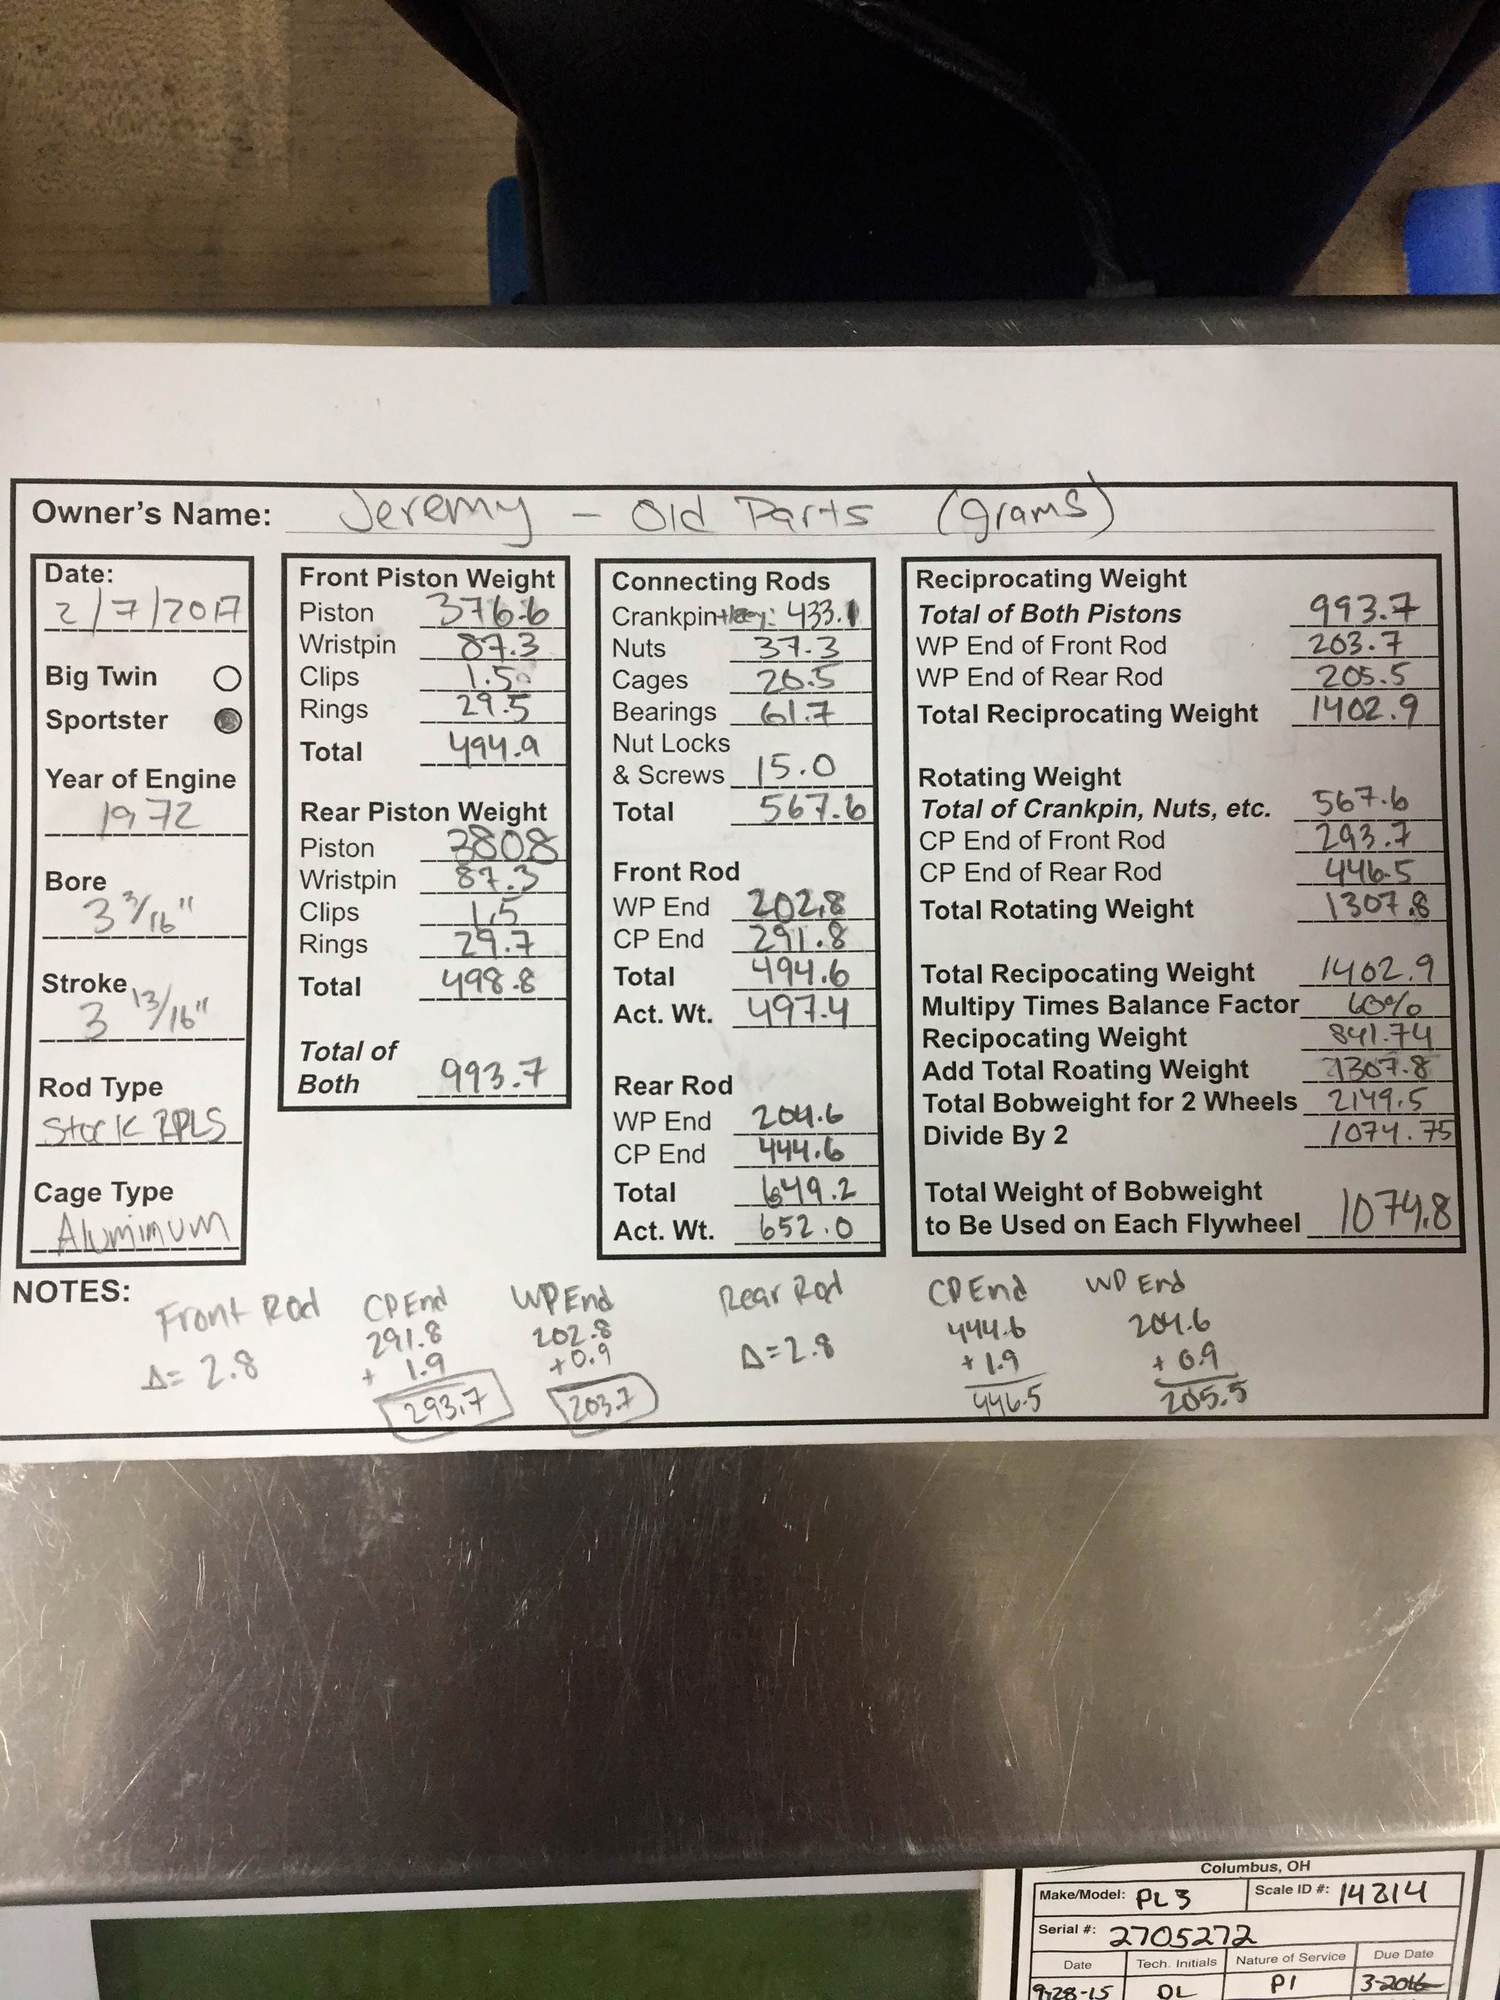 Owner's Name: Jeremy - Old Parts (grams)
Date:
2/7/2017
Big Twin
Sportster
Year of Engine
1972
Bore
3 3/16"
Stroke
3 13/16"
Rod Type
Stock
Cage Type
Aluminum
Front Piston Weight
Piston 376.6
Wristpin 87.3
Clips 1.5
Rings 29.5
Total 494.9
Rear Piston Weight
Piston 3808
Wristpin 87.3
Clips 1.5
Rings 29.7
Total 498.8
Total of
Both 993.7
Connecting Rods
Crankpin+key: 433.1
Nuts 37.3
Cages 20.5
Bearings 61.7
Nut Locks
& Screws 15.0
Total 567.6
Front Rod
WP End 202.8
CP End 291.8
Total 494.6
Act. Wt. 497.4
Rear Rod
WP End 204.6
CP End 444.6
Total 649.2
Act. Wt. 652.0
Reciprocating Weight
Total of Both Pistons 993.7
WP End of Front Rod 203.7
WP End of Rear Rod 205.5
Total Reciprocating Weight 1402.9
Rotating Weight
Total of Crankpin, Nuts, etc. 567.6
CP End of Front Rod 293.7
CP End of Rear Rod 446.5
Total Rotating Weight 1307.8
Total Recipocating Weight 1402.9
Multipy Times Balance Factor 60%
Recipocating Weight 841.74
Add Total Roating Weight 1307.8
Total Bobweight for 2 Wheels 2149.5
Divide By 2 1074.75
Total Weight of Bobweight
to Be Used on Each Flywheel 1074.8
NOTES:
Front Rod
Δ= 2.8
CP End
291.8
+ 1.9
293.7
WP End
202.8
+0.9
203.7
Rear Rod
Δ=2.8
CP End
444.6
+ 1.9
446.5
WP End
204.6
+ 0.9
205.5
Columbus, OH
Make/Model: PL3 Scale ID #: 14214
Serial #: 2705272
Date Tech. Initials Nature of Service Due Date
9-28-15 DL PI 3-2016